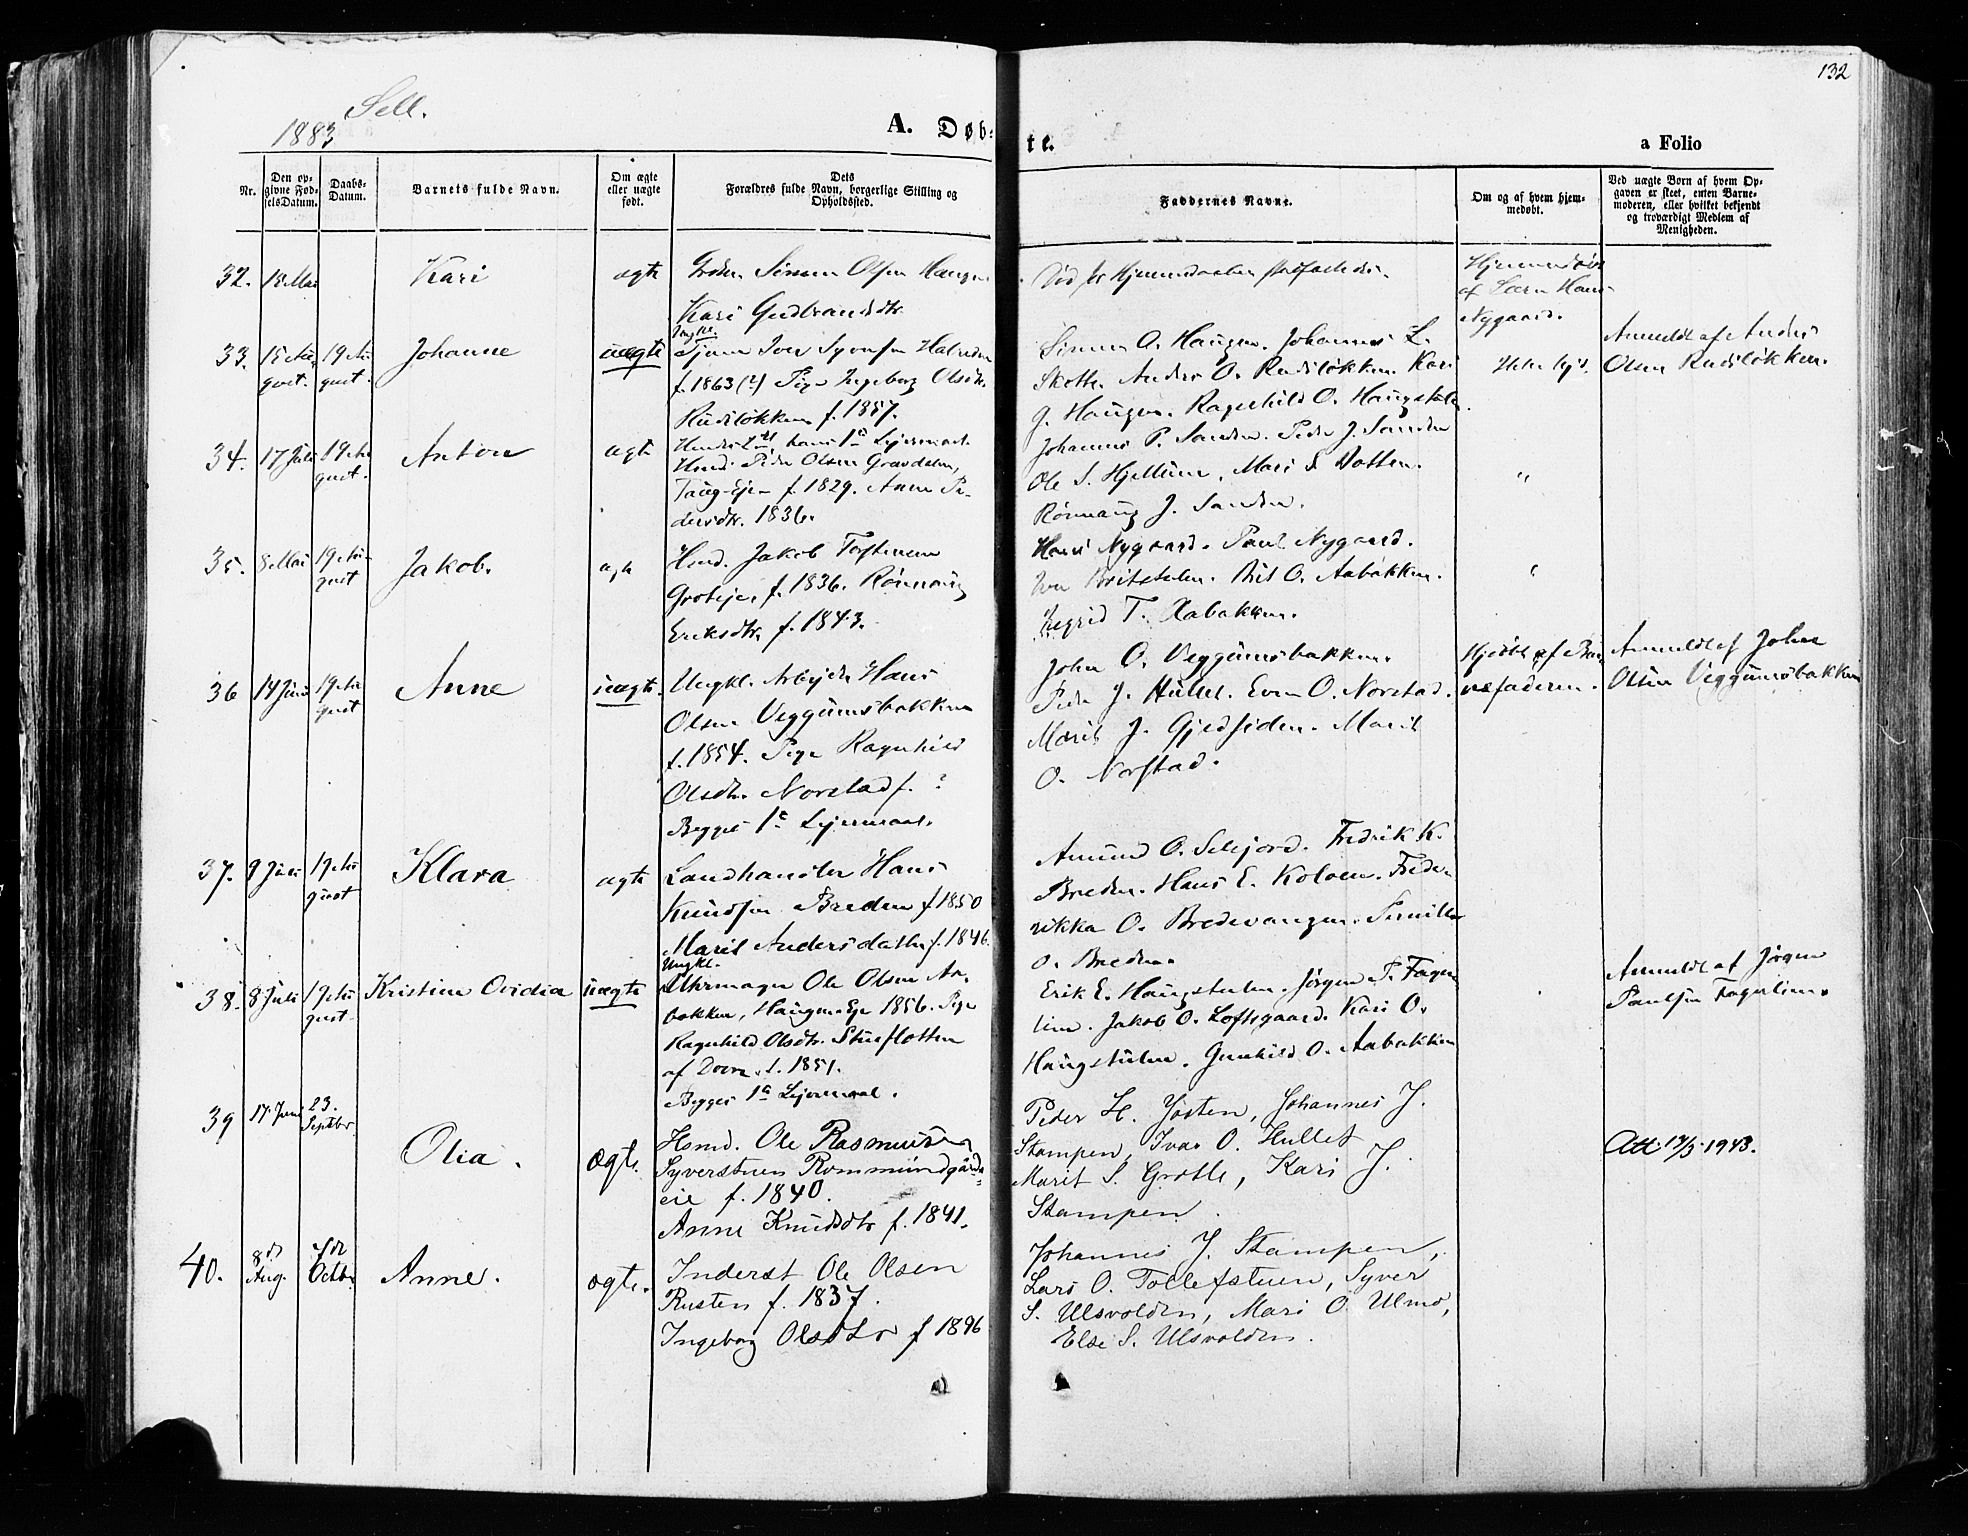 132
Sell.
1883
A. Døb-
te.
a Folio
Nr.
Den op-
givne Fød-
selsDatum.
Daabs-
Datum.
Barnets fulde Navn.
Om ægte
eller uægte
født.
Dets
Forældres fulde Navn, borgerlige Stilling og
Opholdssted.
Faddernes Navne.
Om og af hvem hjem-
medøbt.
Ved uægte Børn af hvem Op-
gaven er skeet, enten Barne-
moderen, eller hvilket bekjendt
og troværdigt Medlem af
Menigheden.
32.
Kari
ægte
Simen Olsen Haugen
Kari Gudbrandsdtr.
af Hans
Nygaard.
33.
19 Au-
gust.
Johanne
uægte
Ungkl.
Tjener Iver Syversen
f. 1863 (?) Pige Ingeborg Olsdtr.
Rudiløkken f. 1857.
Simen O. Haugen. Johannes L.
Skotte. Anders O. Rudiløkken. Kari
J. Haugen. Ragnhild O. Haugstulen
Anmeldt af Anders
Olsen Rudiløkken.
34.
17 Juli
19 Au-
gust.
Anton
ægte
Hmd. Peder Olsen Gravdalen,
Taug-Eje f. 1829. Anne Pe-
dersdtr. 1836.
Johannes P. Sanden. Peder J. Sanden
Ole S. Hjellum, Mari S. Botten.
Rønnaug J. Sanden.
"
35.
8 Mai
19 Au-
gust
Jakob.
ægte
Hmd. Jakob Toftemoen
Groteje, f. 1836. Rønnaug
Eriksdtr. f. 1843.
Hans Nygaard. Paul Nygaard.
Iver Britstulen. Brit O. Aabakken.
Ingrid T. Aabakken.
"
36
14 Juni
19 Au-
gust
Anne
uægte.
Ungkl. Arbejder Hans
Olsen Veggumsbakken
f. 1854. Pige Ragnhild
Olsdtr. Norstad f. ?
Begges 1ste Lejermaal.
John O. Veggumsbakken.
Peder J. Hullet. Even O. Norstad.
Marit J. Gjedsiden. Marit
O. Norstad.
Hjdøbt af Bar-
nefaderen.
Anmeldt af John
Olsen Veggumsbakken
37.
9 Juni
19 Au-
gust
Klara
ægte
Landhandler Hans
Knudsen Breden f 1850
Marit Andersdatter f. 1846.
Amund O. Selsjord. Fredrik K.
Breden. Hans E. Koloen. Frede-
rikka O. Bredevangen. Pernille
O. Breden.
38.
8 Juli
19 Au-
gust.
Kristine Ovidia
uægte
Ungkl.
Uhrmager Ole Olsen Aa-
bakken, Haugen-Eje 1856. Pige
Ragnhild Olsdtr. Stueflotten
af Dovre. f. 1851.
Begges 1ste Lejermaal.
Erik E. Haugstulen. Jørgen P. Fager-
lien. Jakob O. Loftsgaard. Kari O.
Haugstulen. Gunhild O. Aabakken
Anmeldt af Jørgen
Paulsen Fagerlien.
39
17 Juni
23.
Septbr.
Olia.
Ægte.
Hsmd. Ole Rasmusen
Syverstuen Rommundgårds-
eie f. 1840.
Anne Knudsdtr f. 1841.
Peder H. Josten, Johannes J.
Stampen, Ivar O. Hullet
Marit S. Grotte, Kari J.
Stampen.
Att 13/5 1943.
40.
8de
Aug.
7de
Octbr
Anne.
ægte.
Inderst Ole Olsen
Rusten f. 1837.
Ingeborg Olsdtr f 1846
Johannes J. Stampen,
Lars O. Tollefstuen, Syver
S. Ulsvolden, Mari O. Ulmo,
Else S. Ulsvolden.